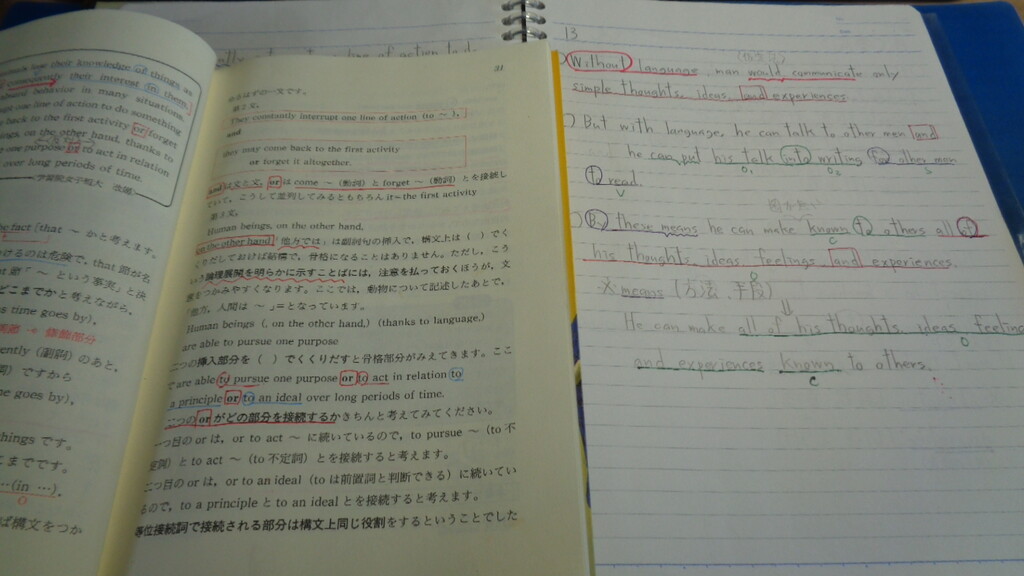 their knowledge of things as
their interest in them,
behavior in many situations.
one line of action to do something
back to the first activity or forget
on the other hand, thanks to
one purpose or to act in relation
over long periods of time.
the fact「that ～ かと考えます。
のは危険で、that 節が名
という事実」と決
どこまでかと考えながら、
time goes by),
修飾部分
(副詞) のあと、
ですから
goes by),
things です。
までです。
…(in …).
O
ば構文をつか
31
なるはずの一文です。
第2文。
They constantly interrupt one line of action (to ～).
and
they may come back to the first activity
or forget it altogether.
and は文と文, or は come ～ (動詞) と forget ～ (動詞) とを接続し
ていて、こうして並列してみるともちろん it=the first activity
第3文。
Human beings, on the other hand,
on the other hand「他方では」は副詞句の挿入で、構文上は ( ) でく
くりだしておけば結構で、骨格になることはありません。ただし、こう
いう論理展開を明らかに示すことばには、注意を払っておくほうが、文
意をつかみやすくなります。ここでは、動物について記述したあとで、
「他方、人間は ～」=となっています。
Human beings (, on the other hand,) (thanks to language,)
are able to pursue one purpose
二つの挿入部分を ( ) でくくりだすと骨格部分がみえてきます。ここ
で are able to pursue one purpose or to act in relation to
a principle or to an ideal over long periods of time.
二つの or がどの部分を接続するかきちんと考えてみてください。
一つ目の or は、or to act ～ に続いているので、to pursue ～ (to 不
定詞) と to act ～ (to 不定詞) とを接続すると考えます。
二つ目の or は、or to an ideal (to は前置詞と判断できる) に続いてい
るので、to a principle と to an ideal とを接続すると考えます。
等位接続詞で接続される部分は構文上同じ役割をするということでした
line of action to do
13
Without language, man would communicate only
simple thoughts, ideas, and experiences.
But with language, he can talk to other men and
he can put his talk into writing for other men
O₁ O₂ S
to read.
V
By these means he can make known to others all of
C
his thoughts, ideas, feelings and experiences.
O
※ means (方法、手段)
⇓
He can make all of his thoughts, ideas, feelings
O
and experiences known to others.
C